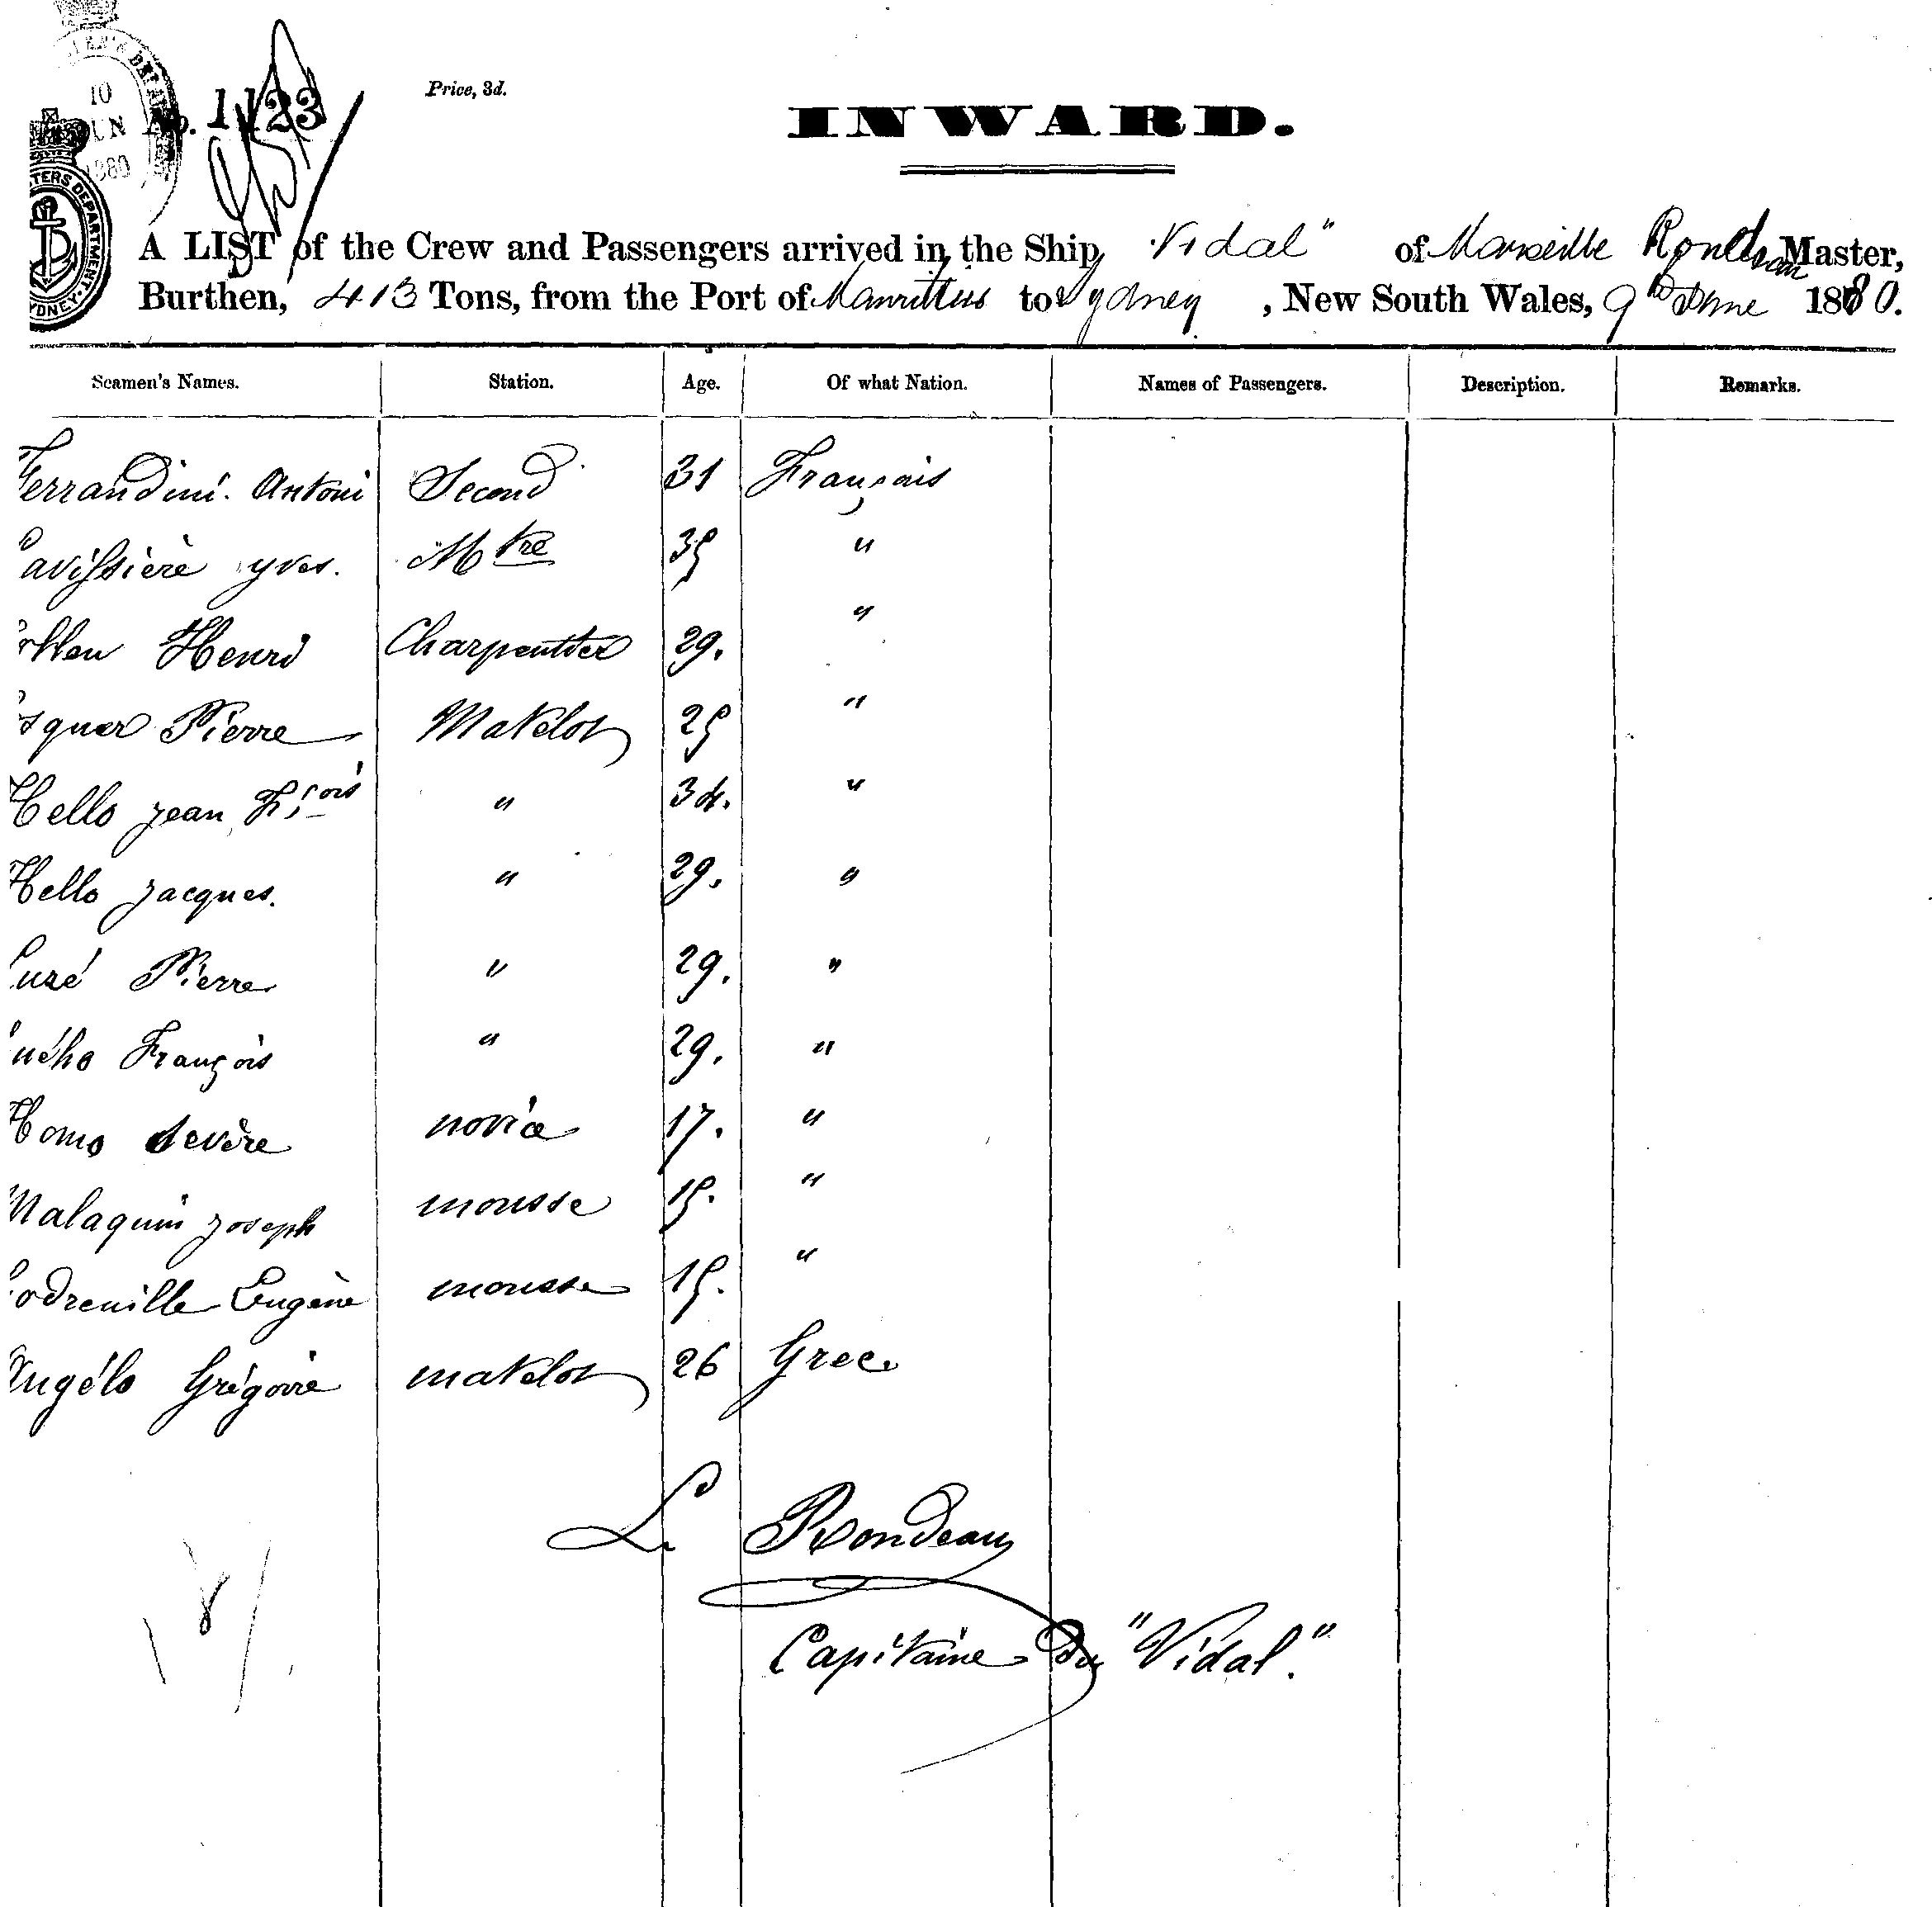 10
JUN
1880
No. 1123
Price, 3d.
INWARD.
TERS DEPARTMENT
YDNEY
A LIST of the Crew and Passengers arrived in the Ship "Vidal" of Marseille Master,
Burthen, 413 Tons, from the Port of Mauritius to Sydney, New South Wales, 9th June 1880.
Seamen's Names. Station. Age. Of what Nation. Names of Passengers. Description. Remarks.
Ferrandini. Antoni Second 31 Français
yves. Mtre 35 "
Henri Charpentier 29. "
Pierre Matelot 25 "
Hello jean Fçois " 34. "
Hello jacques. " 29. "
Pierre " 29. "
François " 29. "
Homo Sevère novice 17. "
Malaquin joseph mousse 15. "
Eugène mousse 15. "
Angélo Grégoire matelot 26 Grec
Le Rondeau
Capitaine du "Vidal."